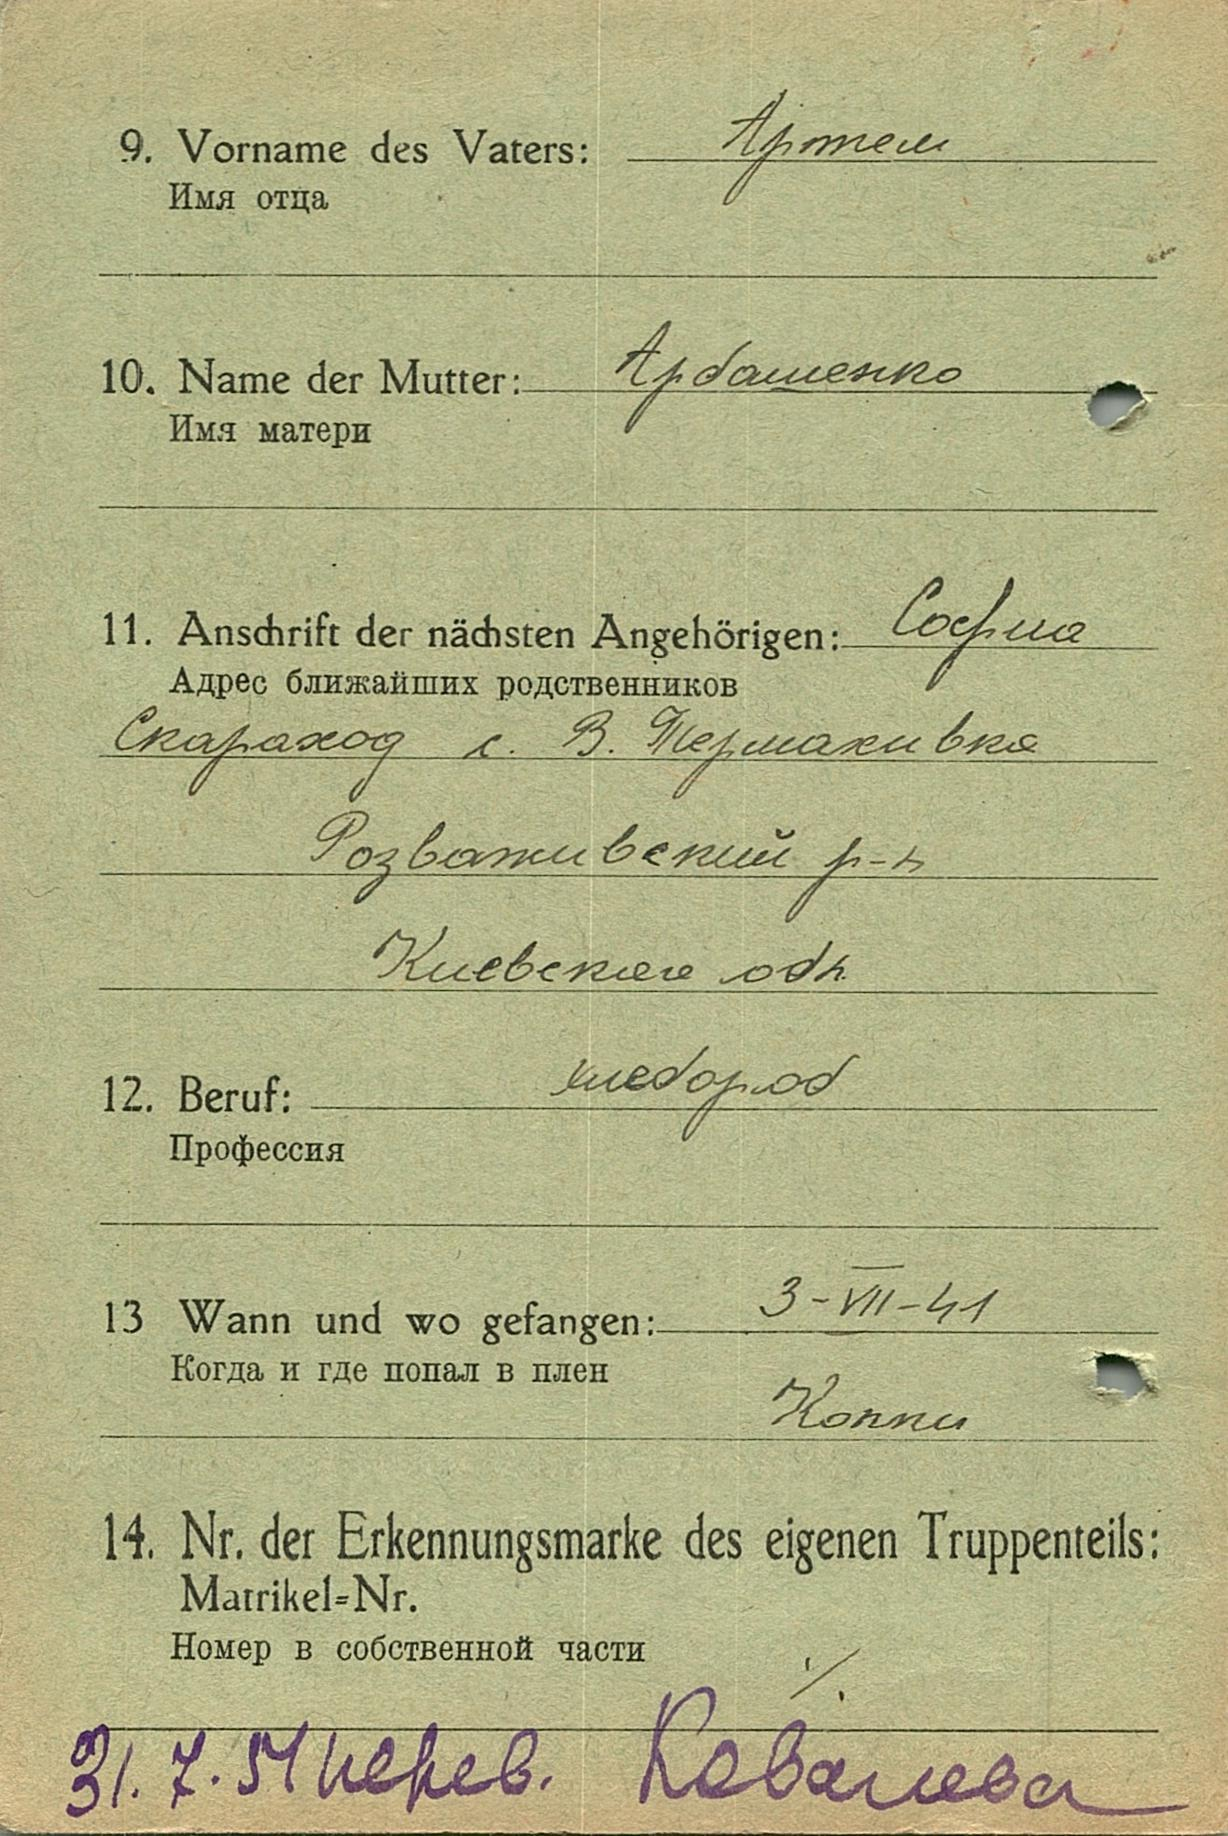 9. Vorname des Vaters: Артем
Имя отца
10. Name der Mutter: Арбашенко
Имя матери
11. Anschrift der nächsten Angehörigen: София
Адрес ближайших родственников
Скараход с. В. Термахивка
Розваживский р-н
Киевского обл.
12. Beruf: хлебороб
Профессия
13 Wann und wo gefangen: 3-VII-41
Когда и где попал в плен
14. Nr. der Erkennungsmarke des eigenen Truppenteils:
Matrikel=Nr.
Номер в собственной части
31.7.51 перев. Ковалева